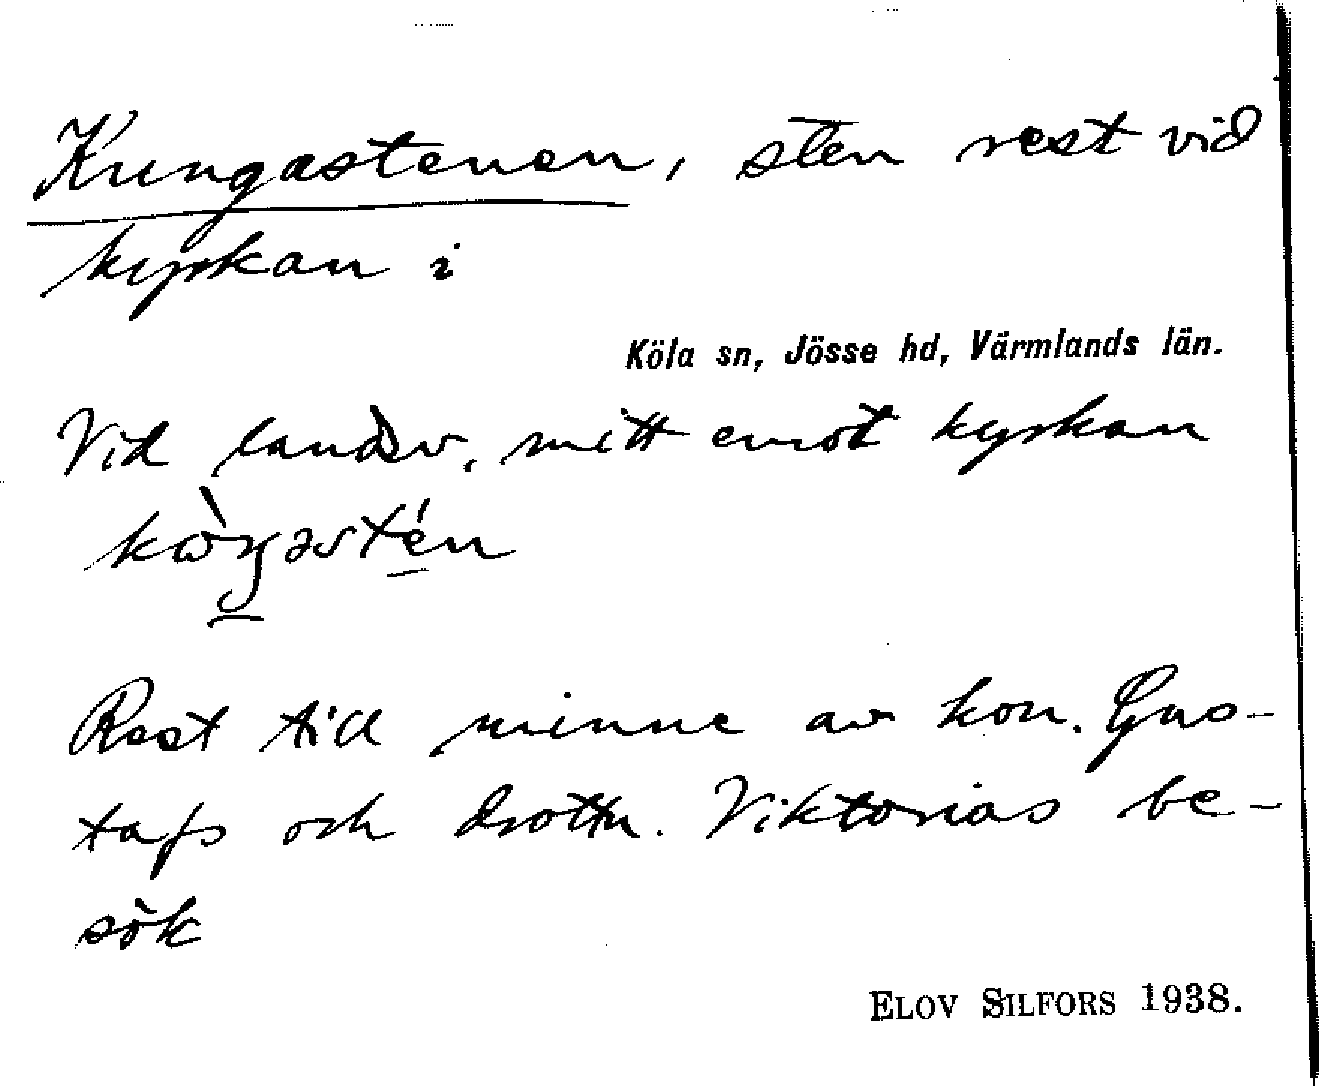 Kungastenen, sten rest vid
kyrkan i
Köla sn, Jösse hd, Värmlands län.
Vid landsv. mitt emot kyrkan
Rest till minne av kon. Gus-
tafs och drottn. Viktorias be-
sök
ELOV SILFORS 1938.